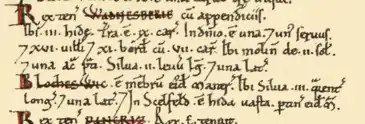 Rex ten& WADNESBERIE cū appendiciis.
Ibi. III. hidę. Tra. ē. IX. car. In dnio. ē una. 7 un' seruus.
7 XVI. uill'i 7 XI. bord cū. VII. car. Ibi molin de. II. sol.
7 una ac pti. Silua. II. leuū lg. 7 una lat.
BLOCHESWIC. ē mēbrū eid maner. Ibi Silua. III. quent
long. 7 una lat. In Scelfeld. ē hida uasta. ptin' eid m̄.
Rex ten&